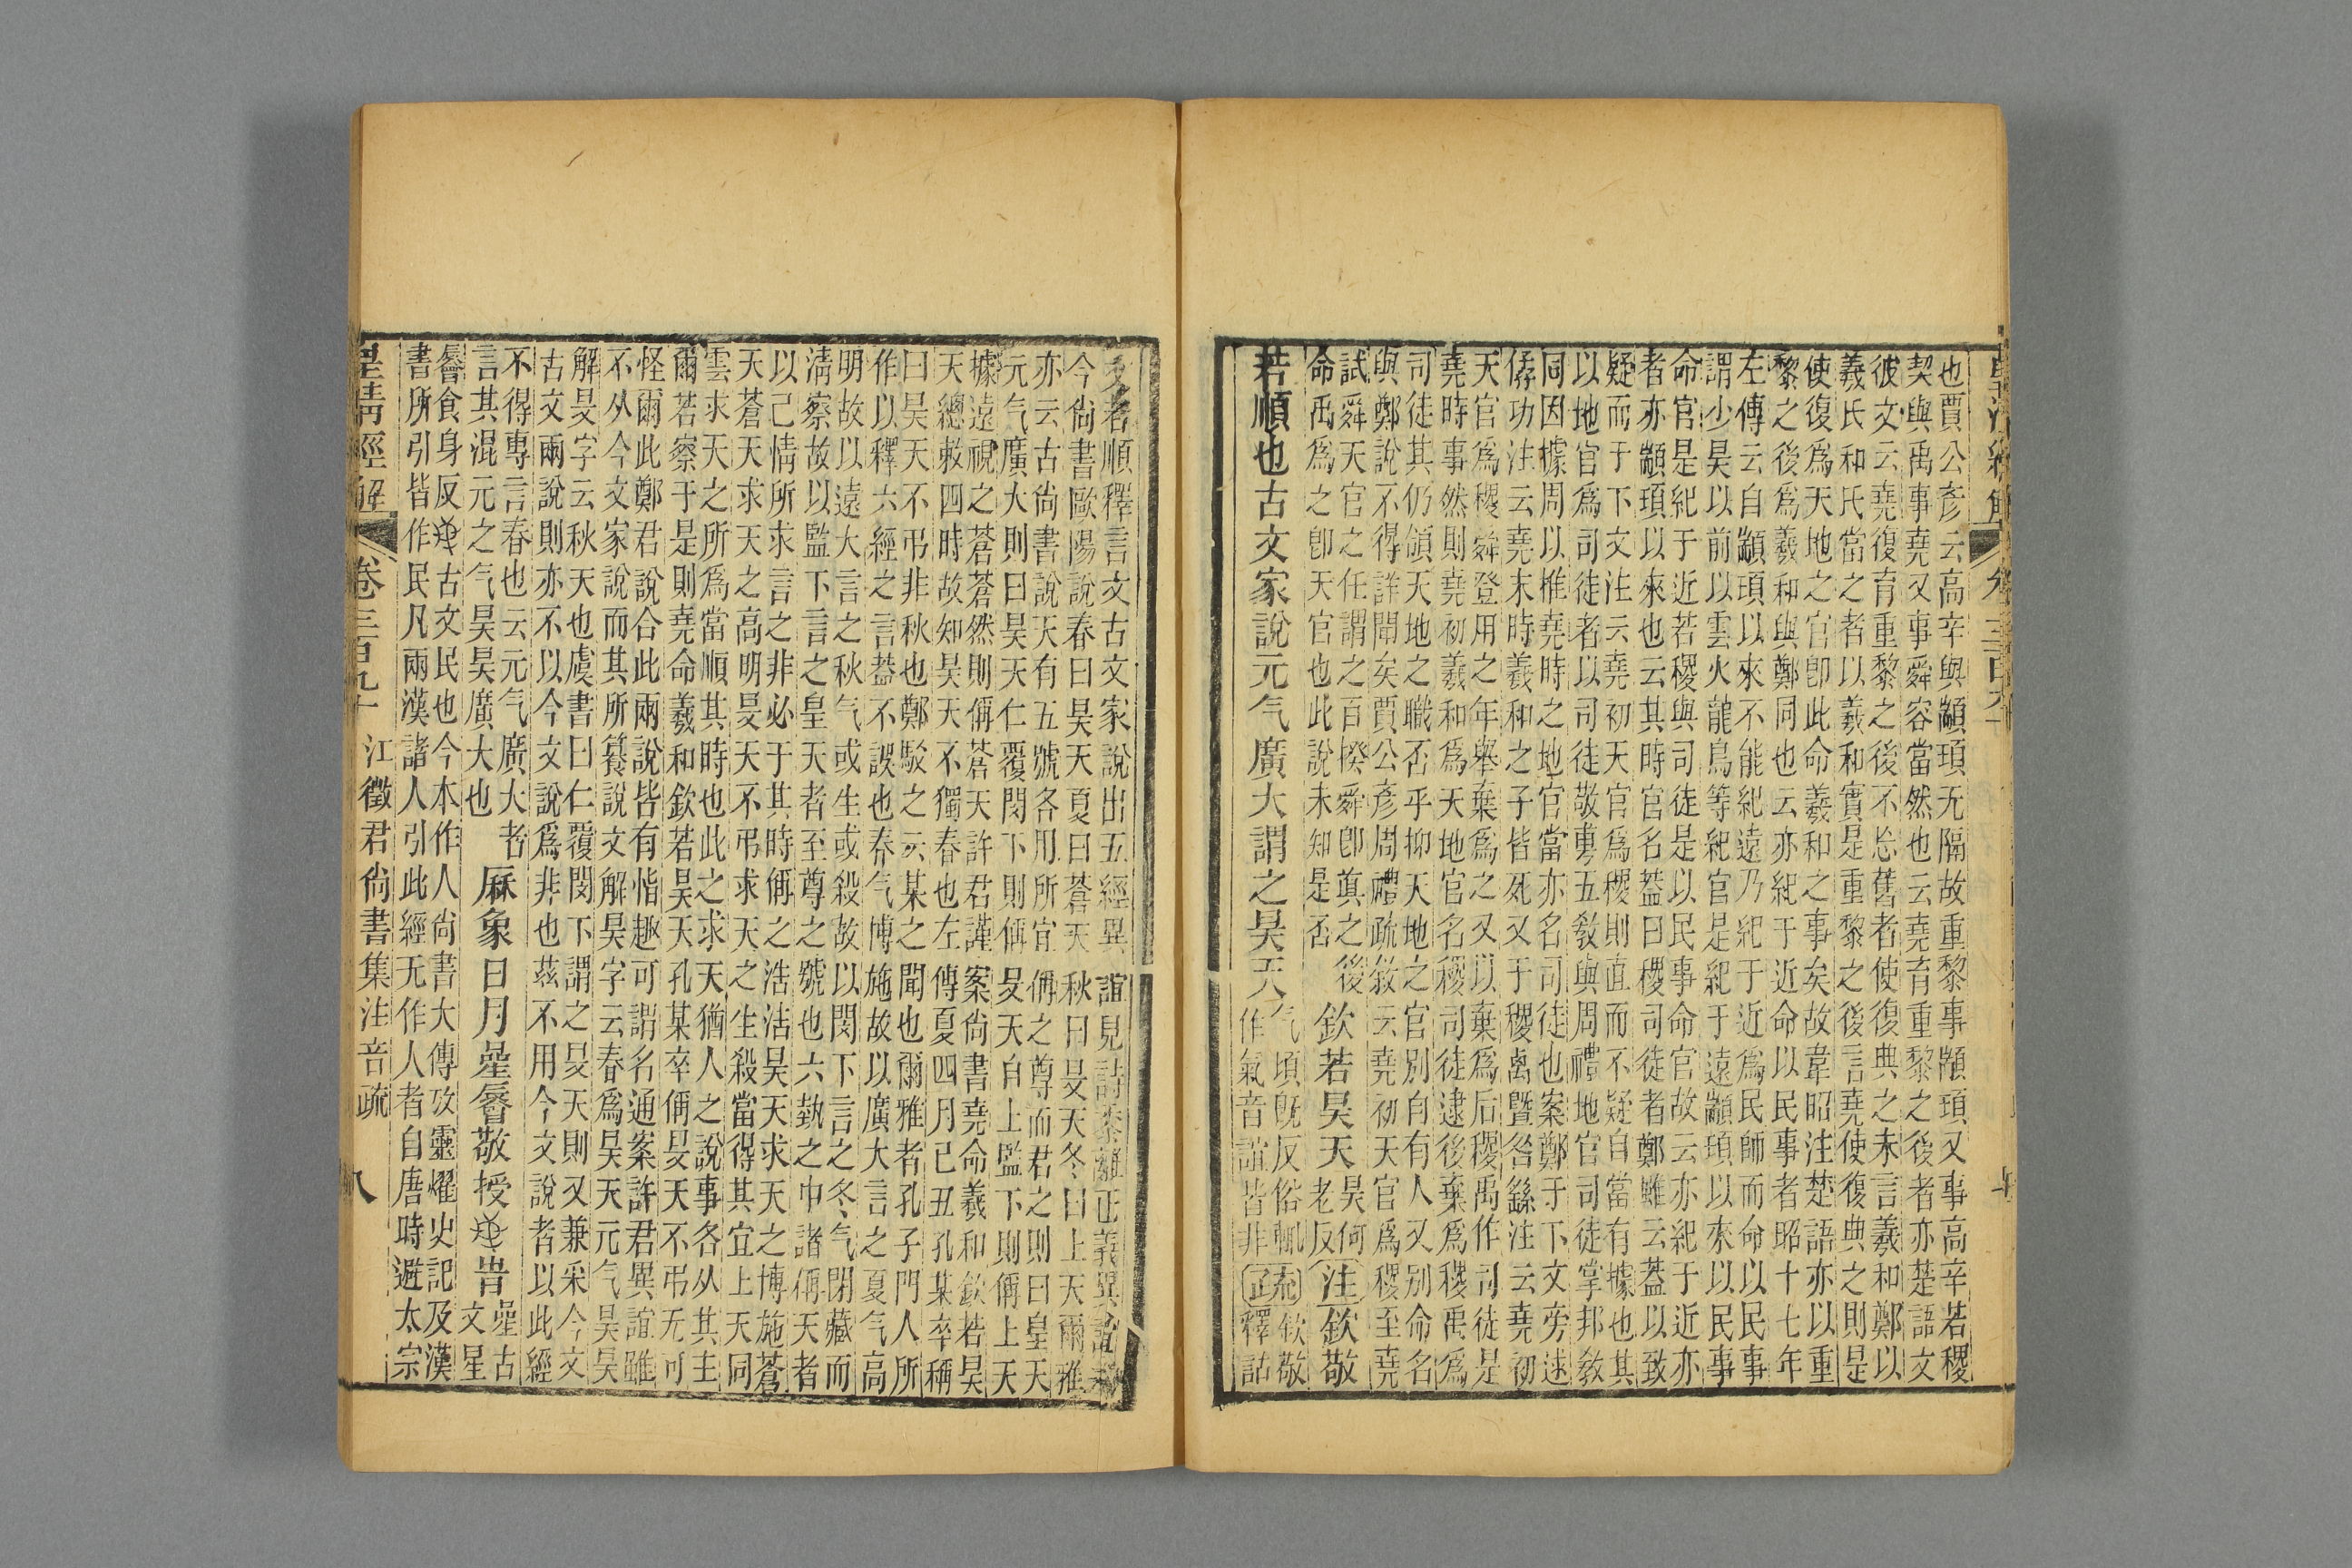 也賈公彥云高辛與顓頊无隔故重黎事顓頊又事高辛若稷
契與禹事堯又事舜容當然也云堯育重黎之後者亦楚語文
彼文云堯復育重黎之後不忘舊者使復典之末言羲和鄭以
羲氏和氏當之者以羲和實是重黎之後言堯使復典之則是
使復爲天地之官卽此命羲和之事矣故韋昭注楚語亦以重
黎之後爲羲和與鄭同也云亦紀于近命以民事者昭十七年
左傳云自顓頊以來不能紀遠乃紀于近爲民師而命以民事
謂少昊以前以雲火龍鳥等紀官是紀于遠顓頊以來以民事
命官是紀于近若稷與司徒是以民事命官故云亦紀于近亦
者亦顓頊以來也云其時官名葢曰稷司徒者鄭雖云葢以致
疑而于下文注云堯初天官爲稷則直而不疑自當有據也其
以地官爲司徒者以司徒敬敷五敎與周禮地官司徒掌邦敎
同因據周以椎堯時之地官當亦名司徒也案鄭于下文旁逑
僝功注云堯末時羲和之子皆死又于稷禼暨咎繇注云堯初
天官爲稷舜登用之年舉棄爲之又以棄爲后稷禹作司徒是
堯時事然則堯初羲和爲天地官名稷司徒逮後棄爲稷禹爲
司徒其仍領天地之職否乎抑天地之官別自有人又別命名
與鄭說不得詳聞矣賈公彥周禮疏敘云堯初天官爲稷至堯
試舜天官之任謂之百揆舜卽眞之後
命禹爲之卽天官也此說未知是否
欽若昊天
昊何
老反
注欽敬
若順也古文家說元气廣大謂之昊天
气頃旣反俗輒
作氣音誼皆非
疏欽敬
正釋詁
皇淸經解
卷三百九十
文若順釋言文古文家說出五經異誼見詩黍離正義異誼稱
今尙書歐陽說春曰昊天夏曰蒼天秋曰旻天冬曰上天爾雅
亦云古尙書說天有五號各用所宜偁之尊而君之則曰皇天
元气廣大則曰昊天仁覆閔下則偁旻天自上監下則偁上天
據遠視之蒼蒼然則偁蒼天許君謹案尙書堯命羲和欽若昊
天總敕四時故知昊天不獨春也左傳夏四月己丑孔某卒稱
曰旻天不弔非秋也鄭駁之云某之聞也爾雅者孔子門人所
作以釋六經之言葢不誤也春气博施故以廣大言之夏气高
明故以遠大言之秋气或生或殺故以閔下言之冬气閉藏而
淸察故以監下言之皇天者至尊之號也六埶之中諸偁天者
以己情所求言之非必于其時偁之浩浩昊天求天之博施蒼
天蒼天求天之高明旻天不弔求天之生殺當得其宜上天同
雲求天之所爲當順其時也此之求天猶人之說事各从其主
爾若察于是則堯命羲和欽若昊天孔某卒偁旻天不弔无可
怪爾此鄭君說合此兩說皆有恉趣可謂名通案許君異誼雖
不从今文家說而其所纂說文解昊字云春爲昊天元气昊昊
解旻字云秋天也虞書曰仁覆閔下謂之旻天則又兼采今文
古文兩說則亦不以今文說爲非也茲不用今文說者以此經
不得專言春也云元气廣大者
言其混元之气昊昊廣大也
厤象日月曐㫳敬授民旹
曐古
文星
㫳食身反古文民也今本作人尙書大傳攷靈燿史記及漢
書所引皆作民凡兩漢諸人引此經无作人者自唐時避太宗
皇淸經解
卷三百九十
江徵君尙書集注音疏
八